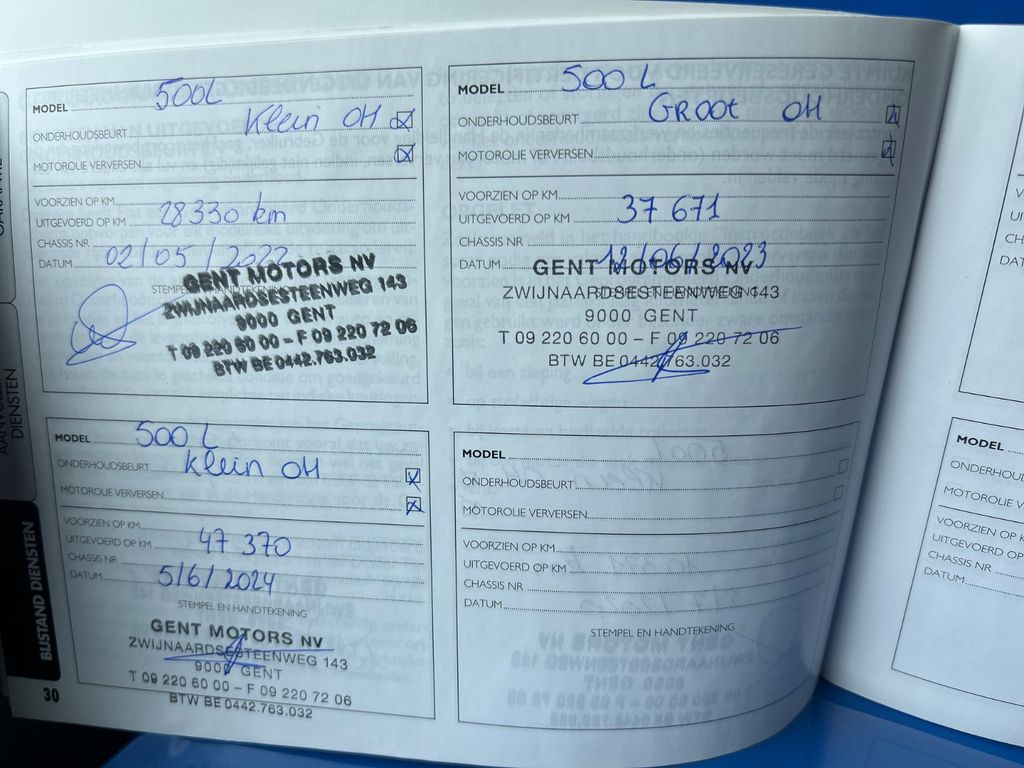 MODEL 500L
ONDERHOUDSBEURT Klein OH
MOTOROLIE VERVERSEN
VOORZIEN OP KM
UITGEVOERD OP KM 28330 km
CHASSIS NR
DATUM 02/05/2022
STEMPEL EN HANDTEKENING
GENT MOTORS NV
ZWIJNAARDSESTEENWEG 143
9000 GENT
T 09 220 60 00 – F 09 220 72 06
BTW BE 0442.763.032
MODEL 500 L
ONDERHOUDSBEURT GROOT OH
MOTOROLIE VERVERSEN
VOORZIEN OP KM
UITGEVOERD OP KM 37 671
CHASSIS NR
DATUM 12/06/2023
STEMPEL EN HANDTEKENING
GENT MOTORS NV
ZWIJNAARDSESTEENWEG 143
9000 GENT
T 09 220 60 00 – F 09 220 72 06
BTW BE 0442.763.032
MODEL 500 L
ONDERHOUDSBEURT Klein OH
MOTOROLIE VERVERSEN
VOORZIEN OP KM
UITGEVOERD OP KM 47 370
CHASSIS NR
DATUM 5/6/2024
STEMPEL EN HANDTEKENING
GENT MOTORS NV
ZWIJNAARDSESTEENWEG 143
9000 GENT
T 09 220 60 00 – F 09 220 72 06
BTW BE 0442.763.032
MODEL
ONDERHOUDSBEURT
MOTOROLIE VERVERSEN
VOORZIEN OP KM
UITGEVOERD OP KM
CHASSIS NR
DATUM
STEMPEL EN HANDTEKENING
DIENSTEN
BIJSTAND DIENSTEN
30
MODEL